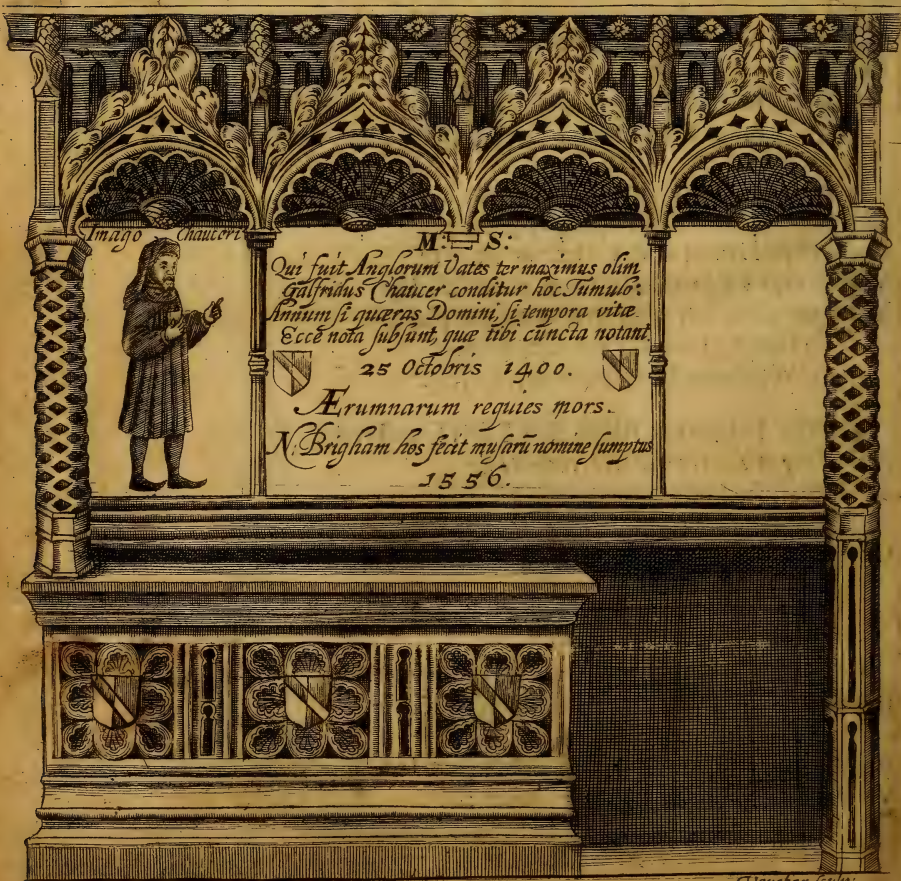 Imago Chauceri
M: S:
Qui fuit Anglorum Vates ter maximus olim
Galfridus Chaucer conditur hoc Tumulo:
Annum si quæras Domini, si tempora vitæ
Ecce nota subsunt, quæ tibi cuncta notant.
25 Octobris 1400.
Ærumnarum requies mors.
N: Brigham hos fecit musarũ nomine sumptus
1556.
Vaughan sculp: